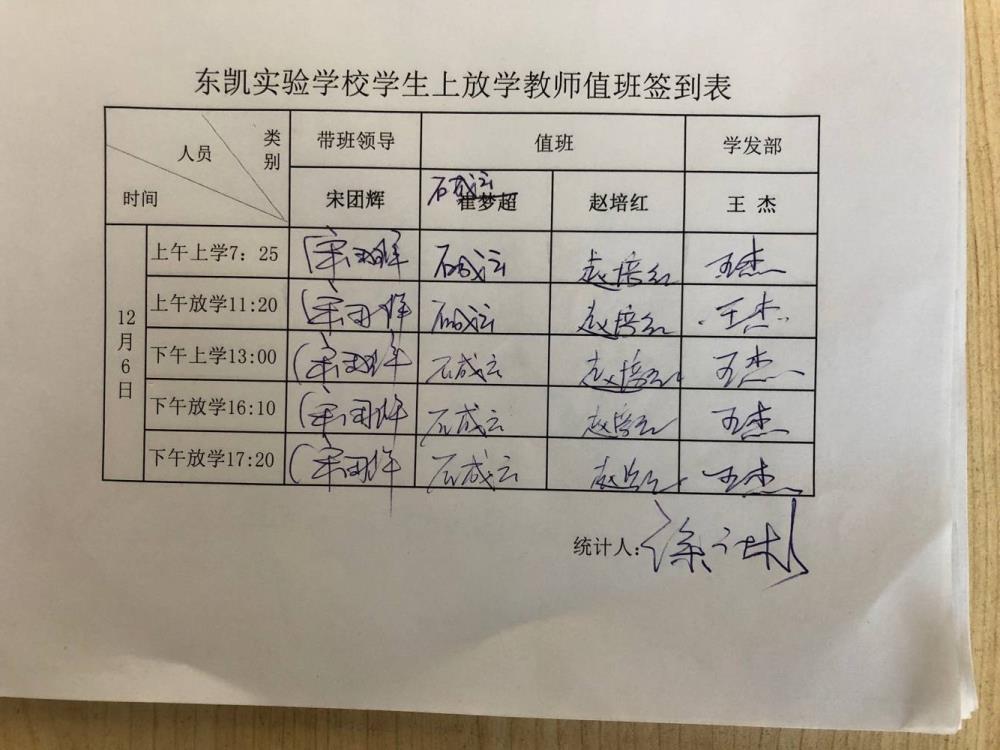 东凯实验学校学生上放学教师值班签到表
人员 类别 时间 带班领导 值班 学发部
宋团辉 石成云 崔梦超 赵培红 王 杰
12月6日
上午上学7：25 宋团辉 石成云 赵培红 王杰
上午放学11:20 宋团辉 石成云 赵培红 王杰
下午上学13:00 宋团辉 石成云 赵培红 王杰
下午放学16:10 宋团辉 石成云 赵培红 王杰
下午放学17:20 宋团辉 石成云 赵培红 王杰
统计人：徐